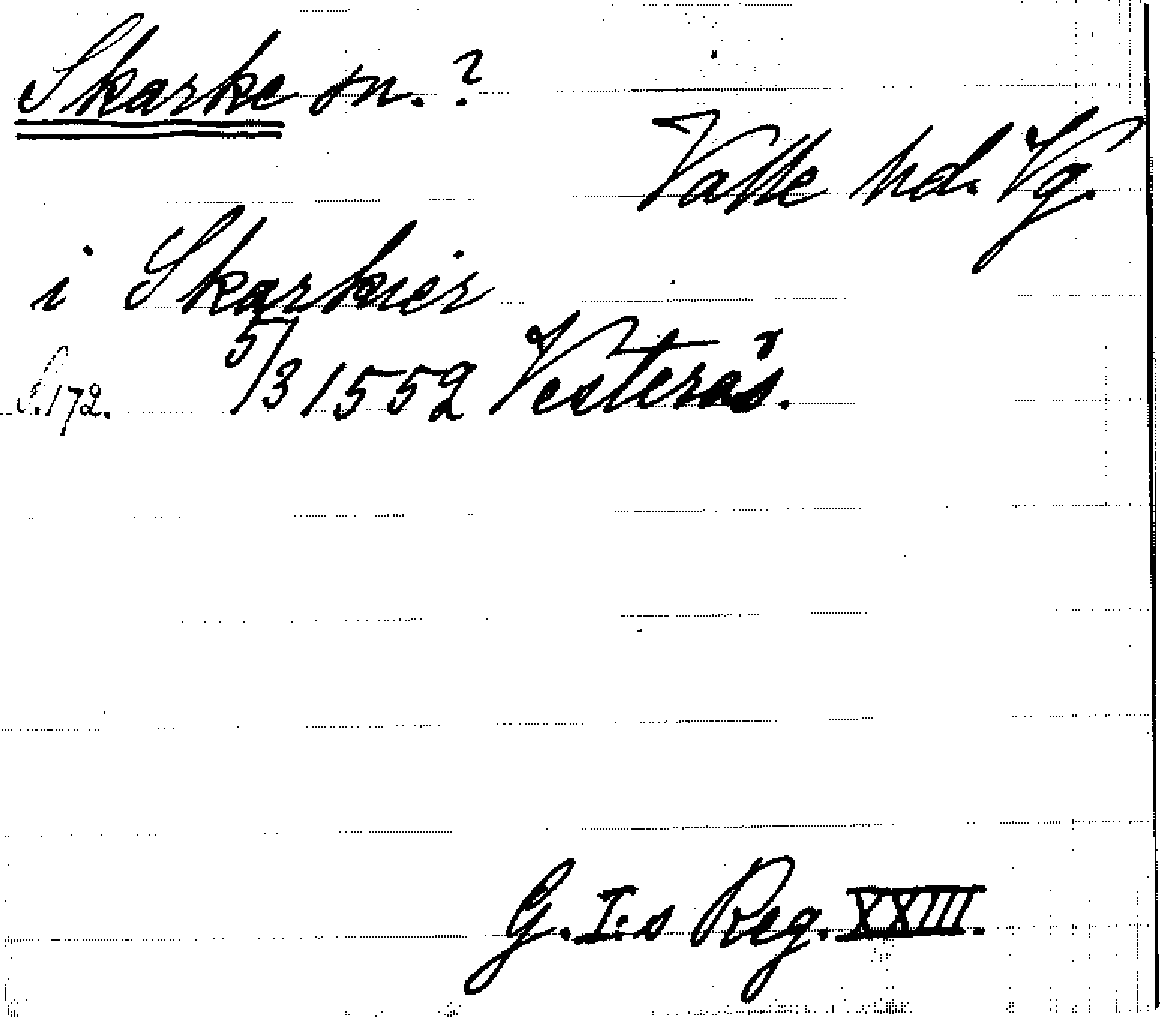 Skarke sn. ?
Valle hd. Vg.
i Skarkier
S. 172. 5/3 1552 Vesterås.
G. I:s Reg. XXIII.